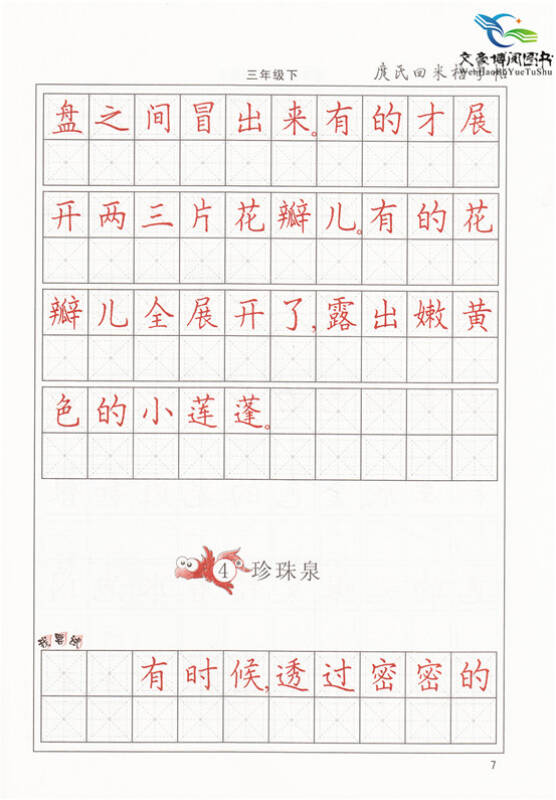 文豪博阅图书
WenHaoBoYueTuShu
三年级下 庹氏回米格字帖
盘之间冒出来。有的才展
开两三片花瓣儿。有的花
瓣儿全展开了,露出嫩黄
色的小莲蓬。
4 珍珠泉
有时候,透过密密的
7